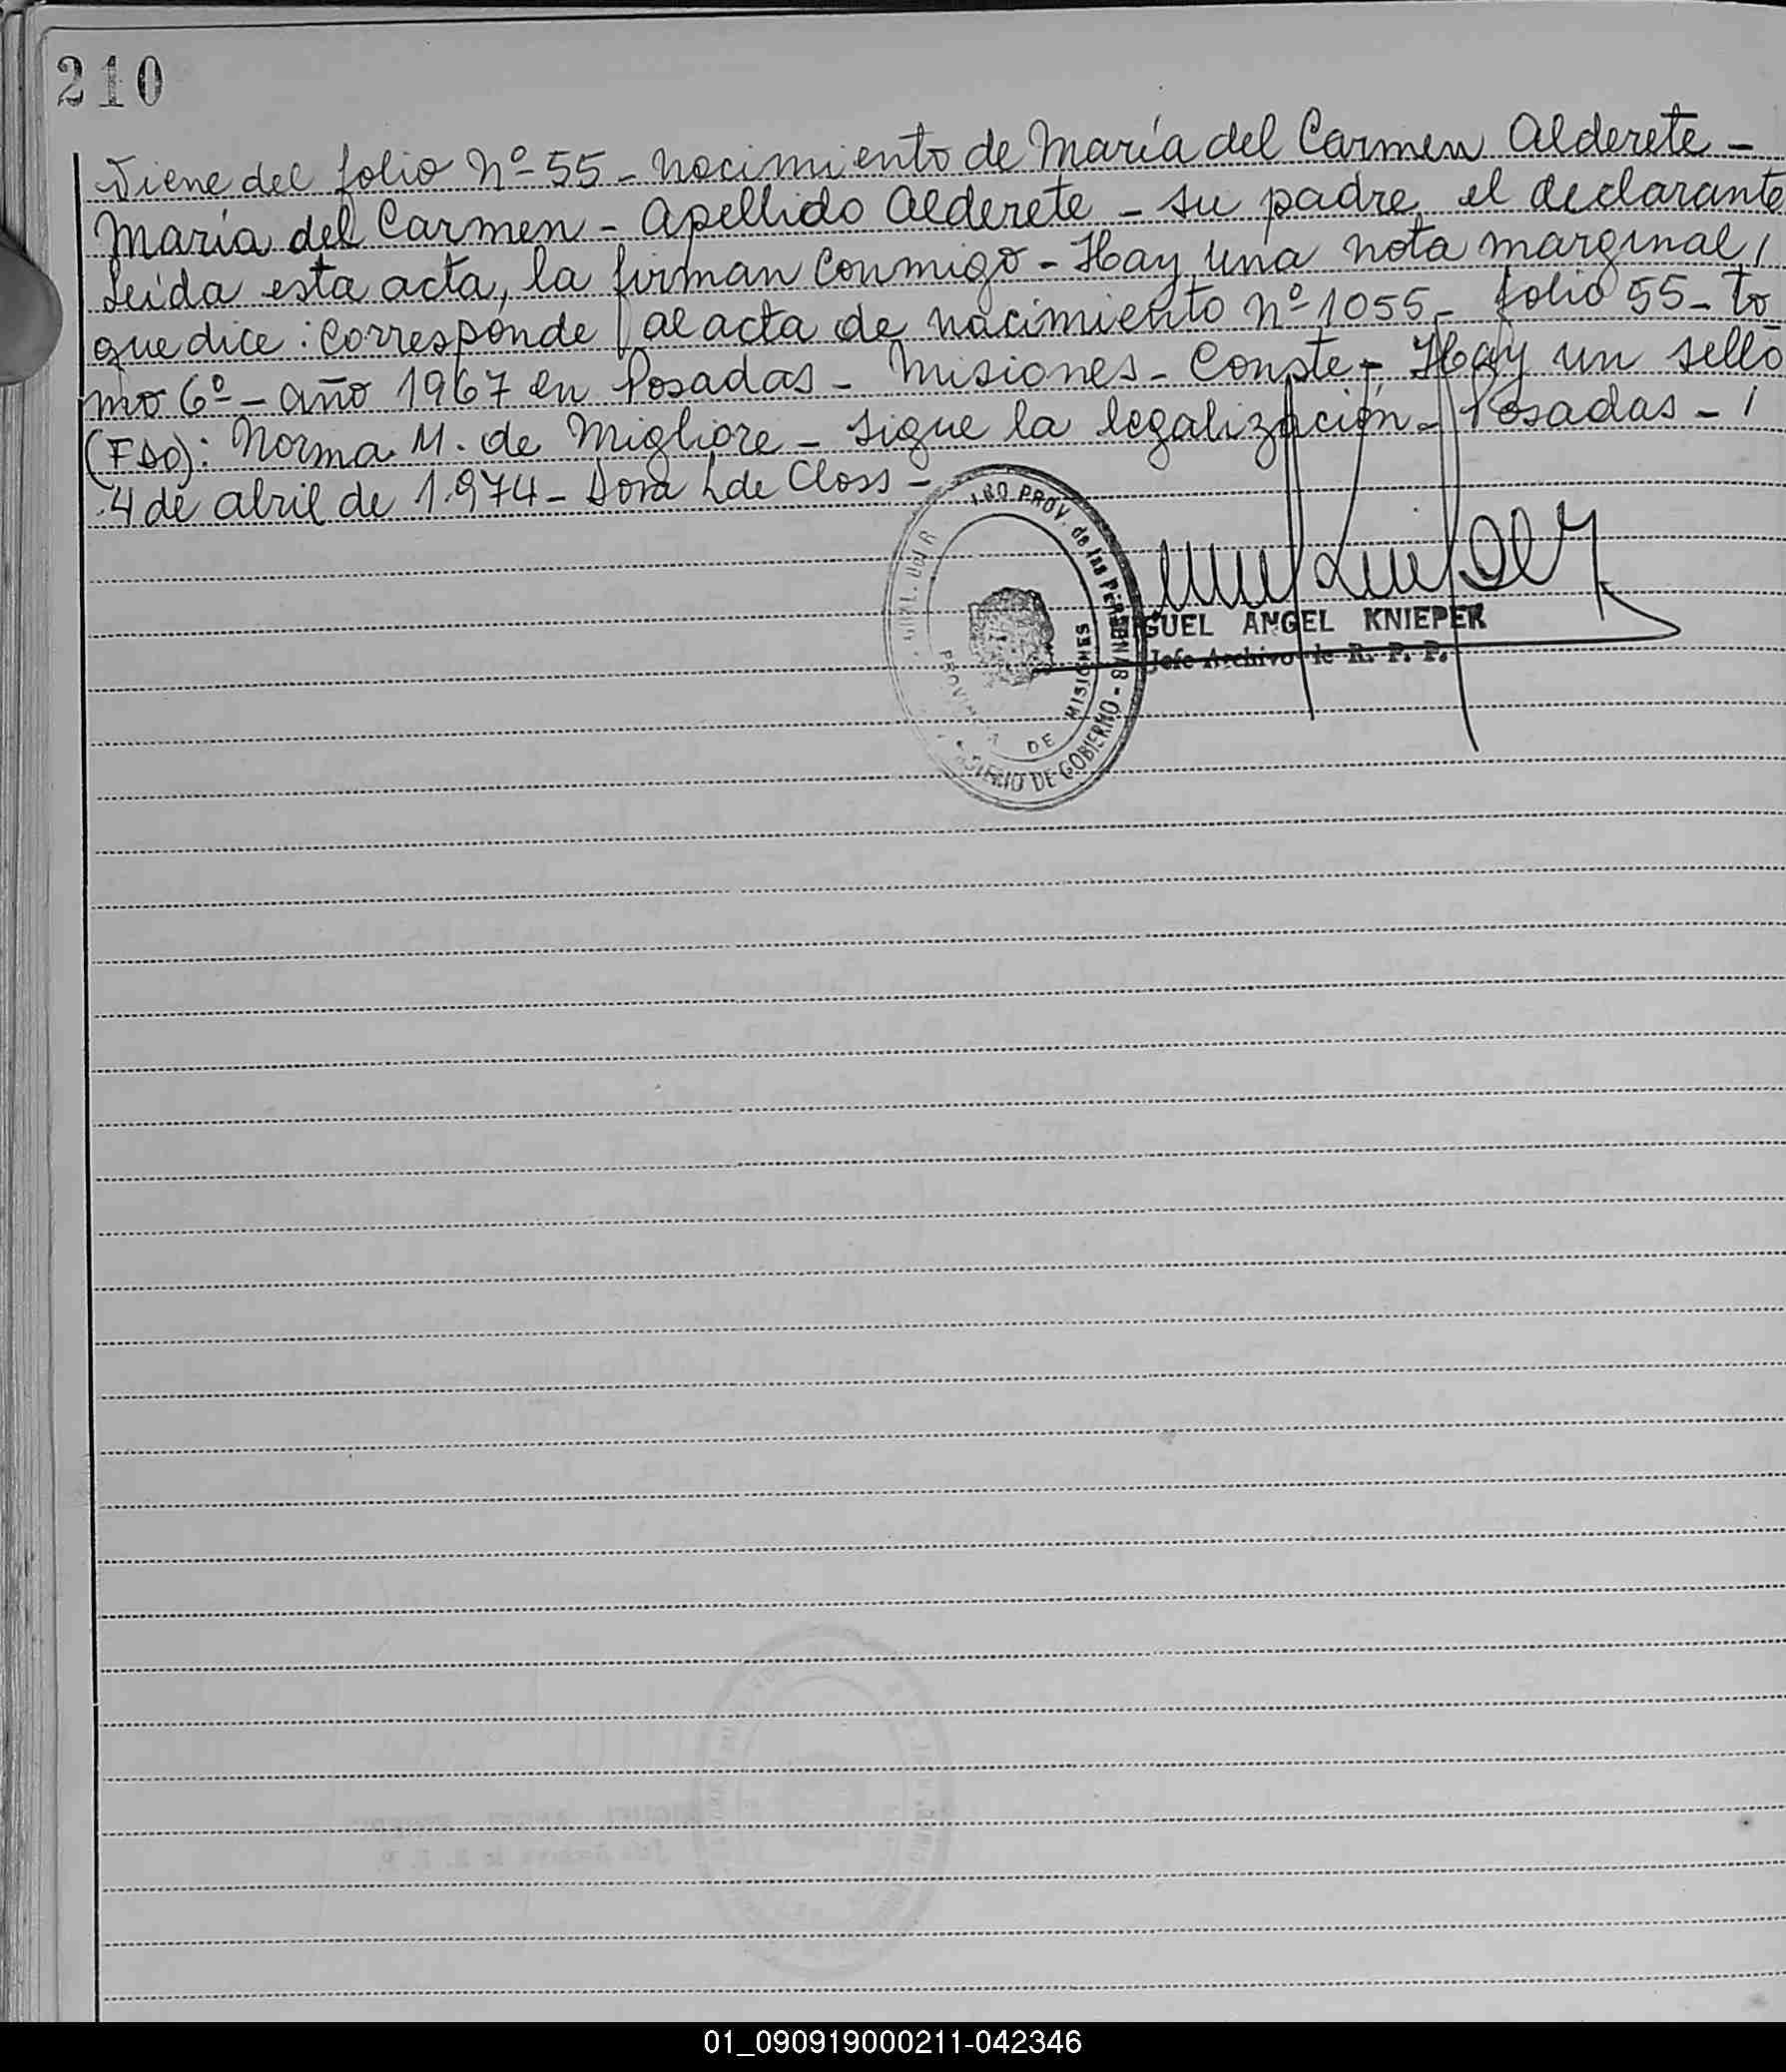 210
Viene del folio Nº 55 - nacimiento de María del Carmen Alderete -
María del Carmen - Apellido Alderete - su padre, el declarante
Leída esta acta, la firman conmigo - Hay una nota marginal /
que dice: Corresponde al acta de nacimiento nº 1055 - folio 55 - to
mo 6º - año 1967 en Posadas - Misiones - Conste - Hay un sello
(Fdo): Norma M. de Migliore - sigue la legalización - Posadas - /
4 de abril de 1.974 - Dora L de Closs -
PROV. de las PERSONAS - GOBIERNO DE
PROVINCIA DE MISIONES
GUEL ANGEL KNIEPER
Jefe Archivo de R. P. P.
01_090919000211-042346